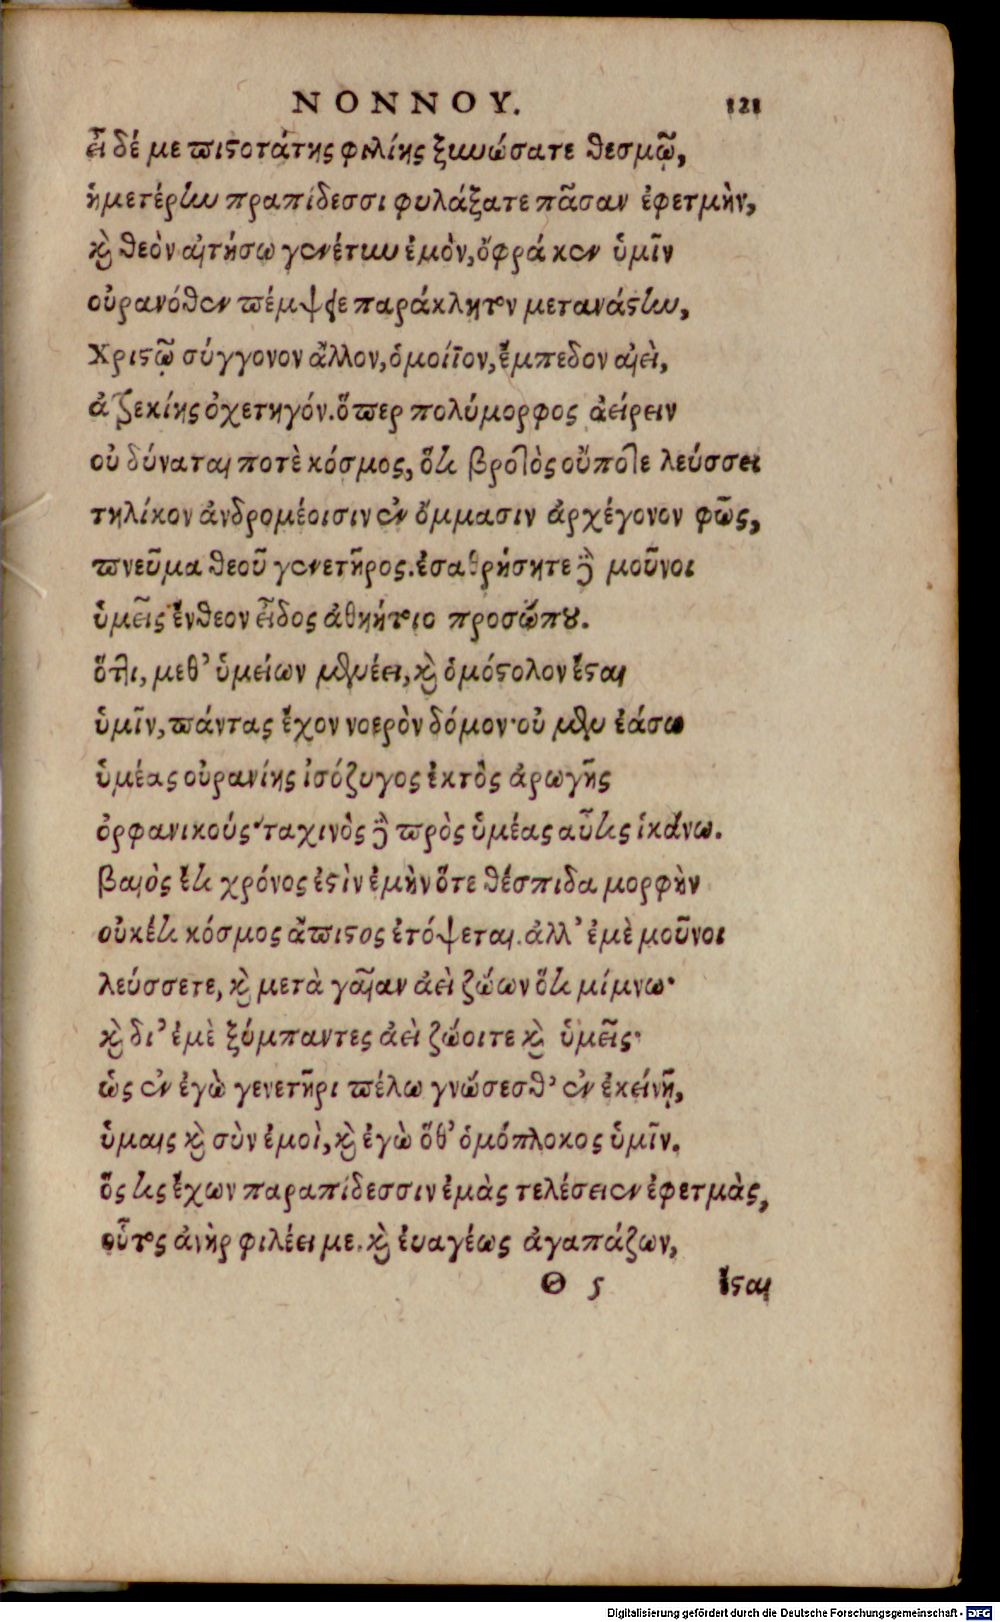 ΝΟΝΝΟΥ. 121
εἰ δέ με πιστοτάτης φιλίης ξυνώσατε θεσμῷ,
ἡμετέρην πραπίδεσσι φυλάξατε πᾶσαν ἐφετμὴν,
καὶ θεὸν αἰτήσω γενέτην ἐμὸν, ὄφρά κεν ὑμῖν
οὐρανόθεν πέμψειε παράκλητον μετανάστην,
Χριστῷ σύγγονον ἄλλον, ὁμοίϊον, ἔμπεδον αἰεὶ,
ἀτρεκίης ὀχετηγόν. ὅπερ πολύμορφος ἀείρειν
οὐ δύναται ποτὲ κόσμος, ὅτι βροτὸς οὔποτε λεύσσει
τηλίκον ἀνδρομέοισιν ἐν ὄμμασιν ἀρχέγονον φῶς,
πνεῦμα θεοῦ γενετῆρος. ἐσαθρήσητε δὲ μοῦνοι
ὑμεῖς ἔνθεον εἶδος ἀθηήτοιο προσώπου.
ὅττι, μεθ' ὑμείων μενέει, καὶ ὁμόστολον ἔσται
ὑμῖν, πάντας ἔχον νοερὸν δόμον· οὐ μὲν ἐάσω
ὑμέας οὐρανίης ἰσόζυγος ἐκτὸς ἀρωγῆς
ὀρφανικούς· ταχινὸς δὲ πρὸς ὑμέας αὖτις ἱκάνω.
βαιὸς ἔτι χρόνος ἐστὶν ἐμὴν ὅτε θέσπιδα μορφὴν
οὐκέτι κόσμος ἄπιστος ἐτόψεται. ἀλλ' ἐμὲ μοῦνοι
λεύσσετε, καὶ μετὰ γαῖαν ἀεὶ ζώων ὅτι μίμνω·
καὶ δι' ἐμὲ ξύμπαντες ἀεὶ ζώοιτε καὶ ὑμεῖς·
ὡς ἐν ἐγὼ γενετῆρι πέλω γνώσεσθ' ἐν ἐκείνῃ,
ὑμαις καὶ σὺν ἐμοὶ, καὶ ἐγὼ ὅθ' ὁμόπλοκος ὑμῖν.
ὅς τις ἔχων παραπίδεσσιν ἐμὰς τελέσειεν ἐφετμὰς,
οὗτος ἀνὴρ φιλέει με. καὶ ἐυαγέως ἀγαπάζων,
Θ ς ἔσται
Digitalisierung gefördert durch die Deutsche Forschungsgemeinschaft - DFG